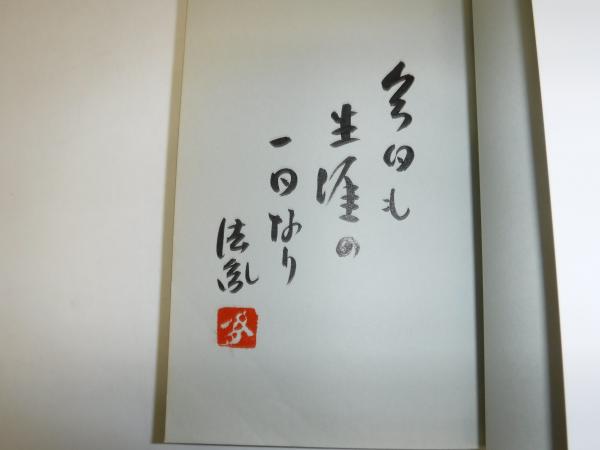 今日も
生涯の
一日なり
法胤